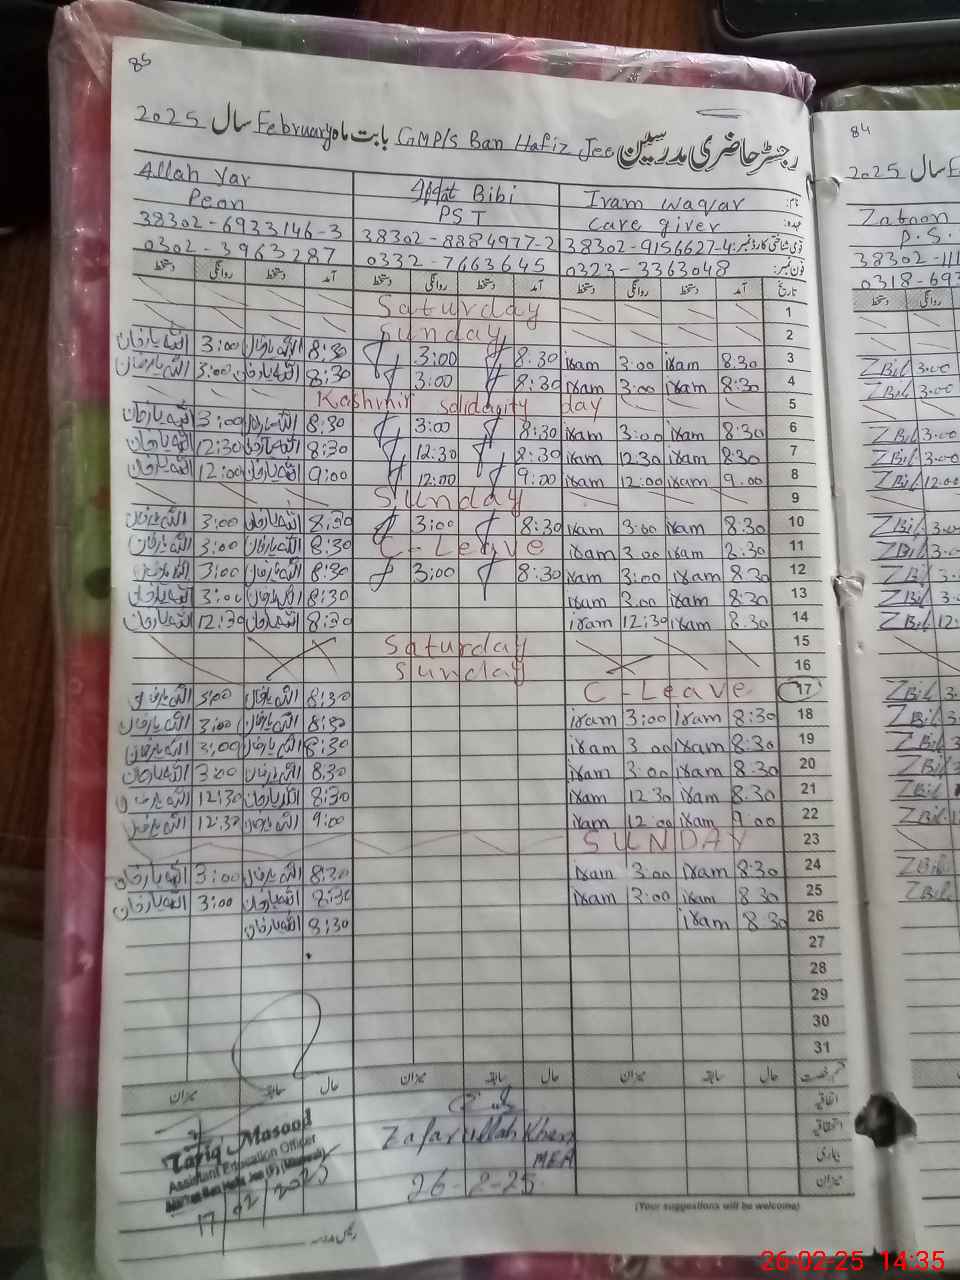 85
رجسٹر حاضری مدرسین GMP/S Ban Hafiz Jee بابت ماہ February سال 2025
نام: Iram waqar | Iffat Bibi | Allah Yar
عہدہ: Care giver | PST | Peon
قومی شناختی کارڈ نمبر: 38302-9156627-4 | 38302-8884977-2 | 38302-6933146-3
فون نمبر: 0323-3363048 | 0332-7663645 | 0302-3963287
تاریخ آمد دستخط روانگی دستخط آمد دستخط روانگی دستخط آمد دستخط روانگی دستخط
1 Saturday
2 Sunday
3 8.30 iram 3:00 iram | 8.30 3:00 | 8:30 اللہ یار خان 3:00 اللہ یار خان
4 8:30 iram 3:00 iram | 8:30 3:00 | 8:30 اللہ یار خان 3:00 اللہ یار خان
5 Kashmir solidarity day
6 8:30 iram 3:00 iram | 8:30 3:00 | 8:30 اللہ یار خان 3:00 اللہ یار خان
7 8:30 iram 12.30 iram | 8:30 12:30 | 8:30 اللہ یار خان 12:30 اللہ یار خان
8 9.00 iram 12:00 iram | 9:00 12:00 | 9:00 اللہ یار خان 12:00 اللہ یار خان
9 Sunday
10 8:30 iram 3:00 iram | 8:30 3:00 | 8:30 اللہ یار خان 3:00 اللہ یار خان
11 8:30 iram 3.00 iram | C-Leave | 8:30 اللہ یار خان 3:00 اللہ یار خان
12 8:30 iram 3:00 iram | 8:30 3:00 | 8:30 اللہ یار خان 3:00 اللہ یار خان
13 8:30 iram 3.00 iram | 8:30 اللہ یار خان 3:00 اللہ یار خان
14 8:30 iram 12:30 iram | 8:30 اللہ یار خان 12:30 اللہ یار خان
15 Saturday
16 Sunday
17 C-Leave | 8:30 اللہ یار خان 3:00 اللہ یار خان
18 8:30 iram 3:00 iram | 8:30 اللہ یار خان 3:00 اللہ یار خان
19 8:30 iram 3.00 iram | 8:30 اللہ یار خان 3:00 اللہ یار خان
20 8:30 iram 3:00 iram | 8:30 اللہ یار خان 3:00 اللہ یار خان
21 8.30 iram 12:30 iram | 8:30 اللہ یار خان 12:30 اللہ یار خان
22 9:00 iram 12:00 iram | 9:00 اللہ یار خان 12:30 اللہ یار خان
23 SUNDAY
24 8:30 iram 3:00 iram | 8:30 اللہ یار خان 3:00 اللہ یار خان
25 8:30 iram 3:00 iram | 8:30 اللہ یار خان 3:00 اللہ یار خان
26 8:30 iram | 8:30 اللہ یار خان
27
28
29
30
31
قسم رخصت حال سابقہ میزان حال سابقہ میزان حال سابقہ میزان
اتفاقیہ
استحقاقیہ
بیماری
میزان
Zafarullah Khan
MEA
26-2-25
Tariq Masood
Assistant Education Officer
17/02/2025
رئیس مدرسہ
(Your suggestions will be welcome)
84
2025 سال
Zatoon
P.S.
38302-11
0318-693
دستخط روانگی
ZBil 3.00
ZBil 3.00
ZBil 3.00
ZBil 3.00
ZBil 12.00
ZBil 3.00
ZBil 3.0
ZBil 3.
ZBil 3.
ZBil 12.
ZBil 3.
ZBil 3.
ZBil 3
ZBil 3
ZBil
ZBil
ZBil
ZBil
26-02-25 14:35